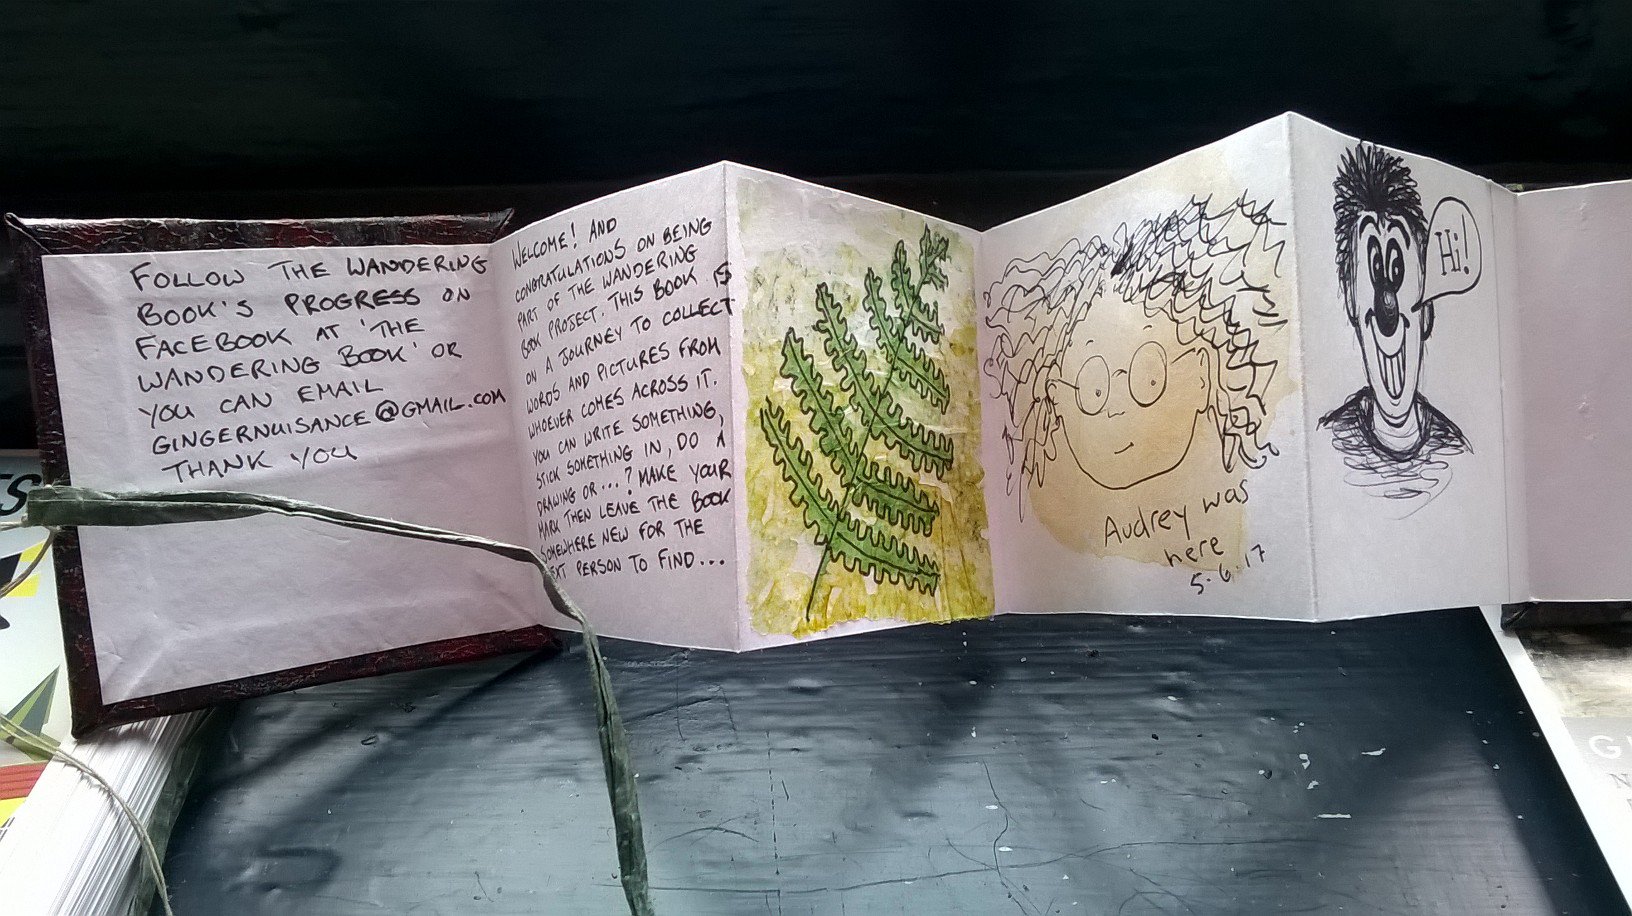 FOLLOW THE WANDERING
BOOK'S PROGRESS ON
FACEBOOK AT 'THE
WANDERING BOOK' OR
YOU CAN EMAIL
GINGERNUISANCE@GMAIL.COM
THANK YOU
WELCOME! AND
CONGRATULATIONS ON BEING
PART OF THE WANDERING
BOOK PROJECT. THIS BOOK IS
ON A JOURNEY TO COLLECT
WORDS AND PICTURES FROM
WHOEVER COMES ACROSS IT.
YOU CAN WRITE SOMETHING,
STICK SOMETHING IN, DO A
DRAWING OR...? MAKE YOUR
MARK THEN LEAVE THE BOOK
SOMEWHERE NEW FOR THE
PERSON TO FIND...
Audrey was
here
5.6.17
Hi!